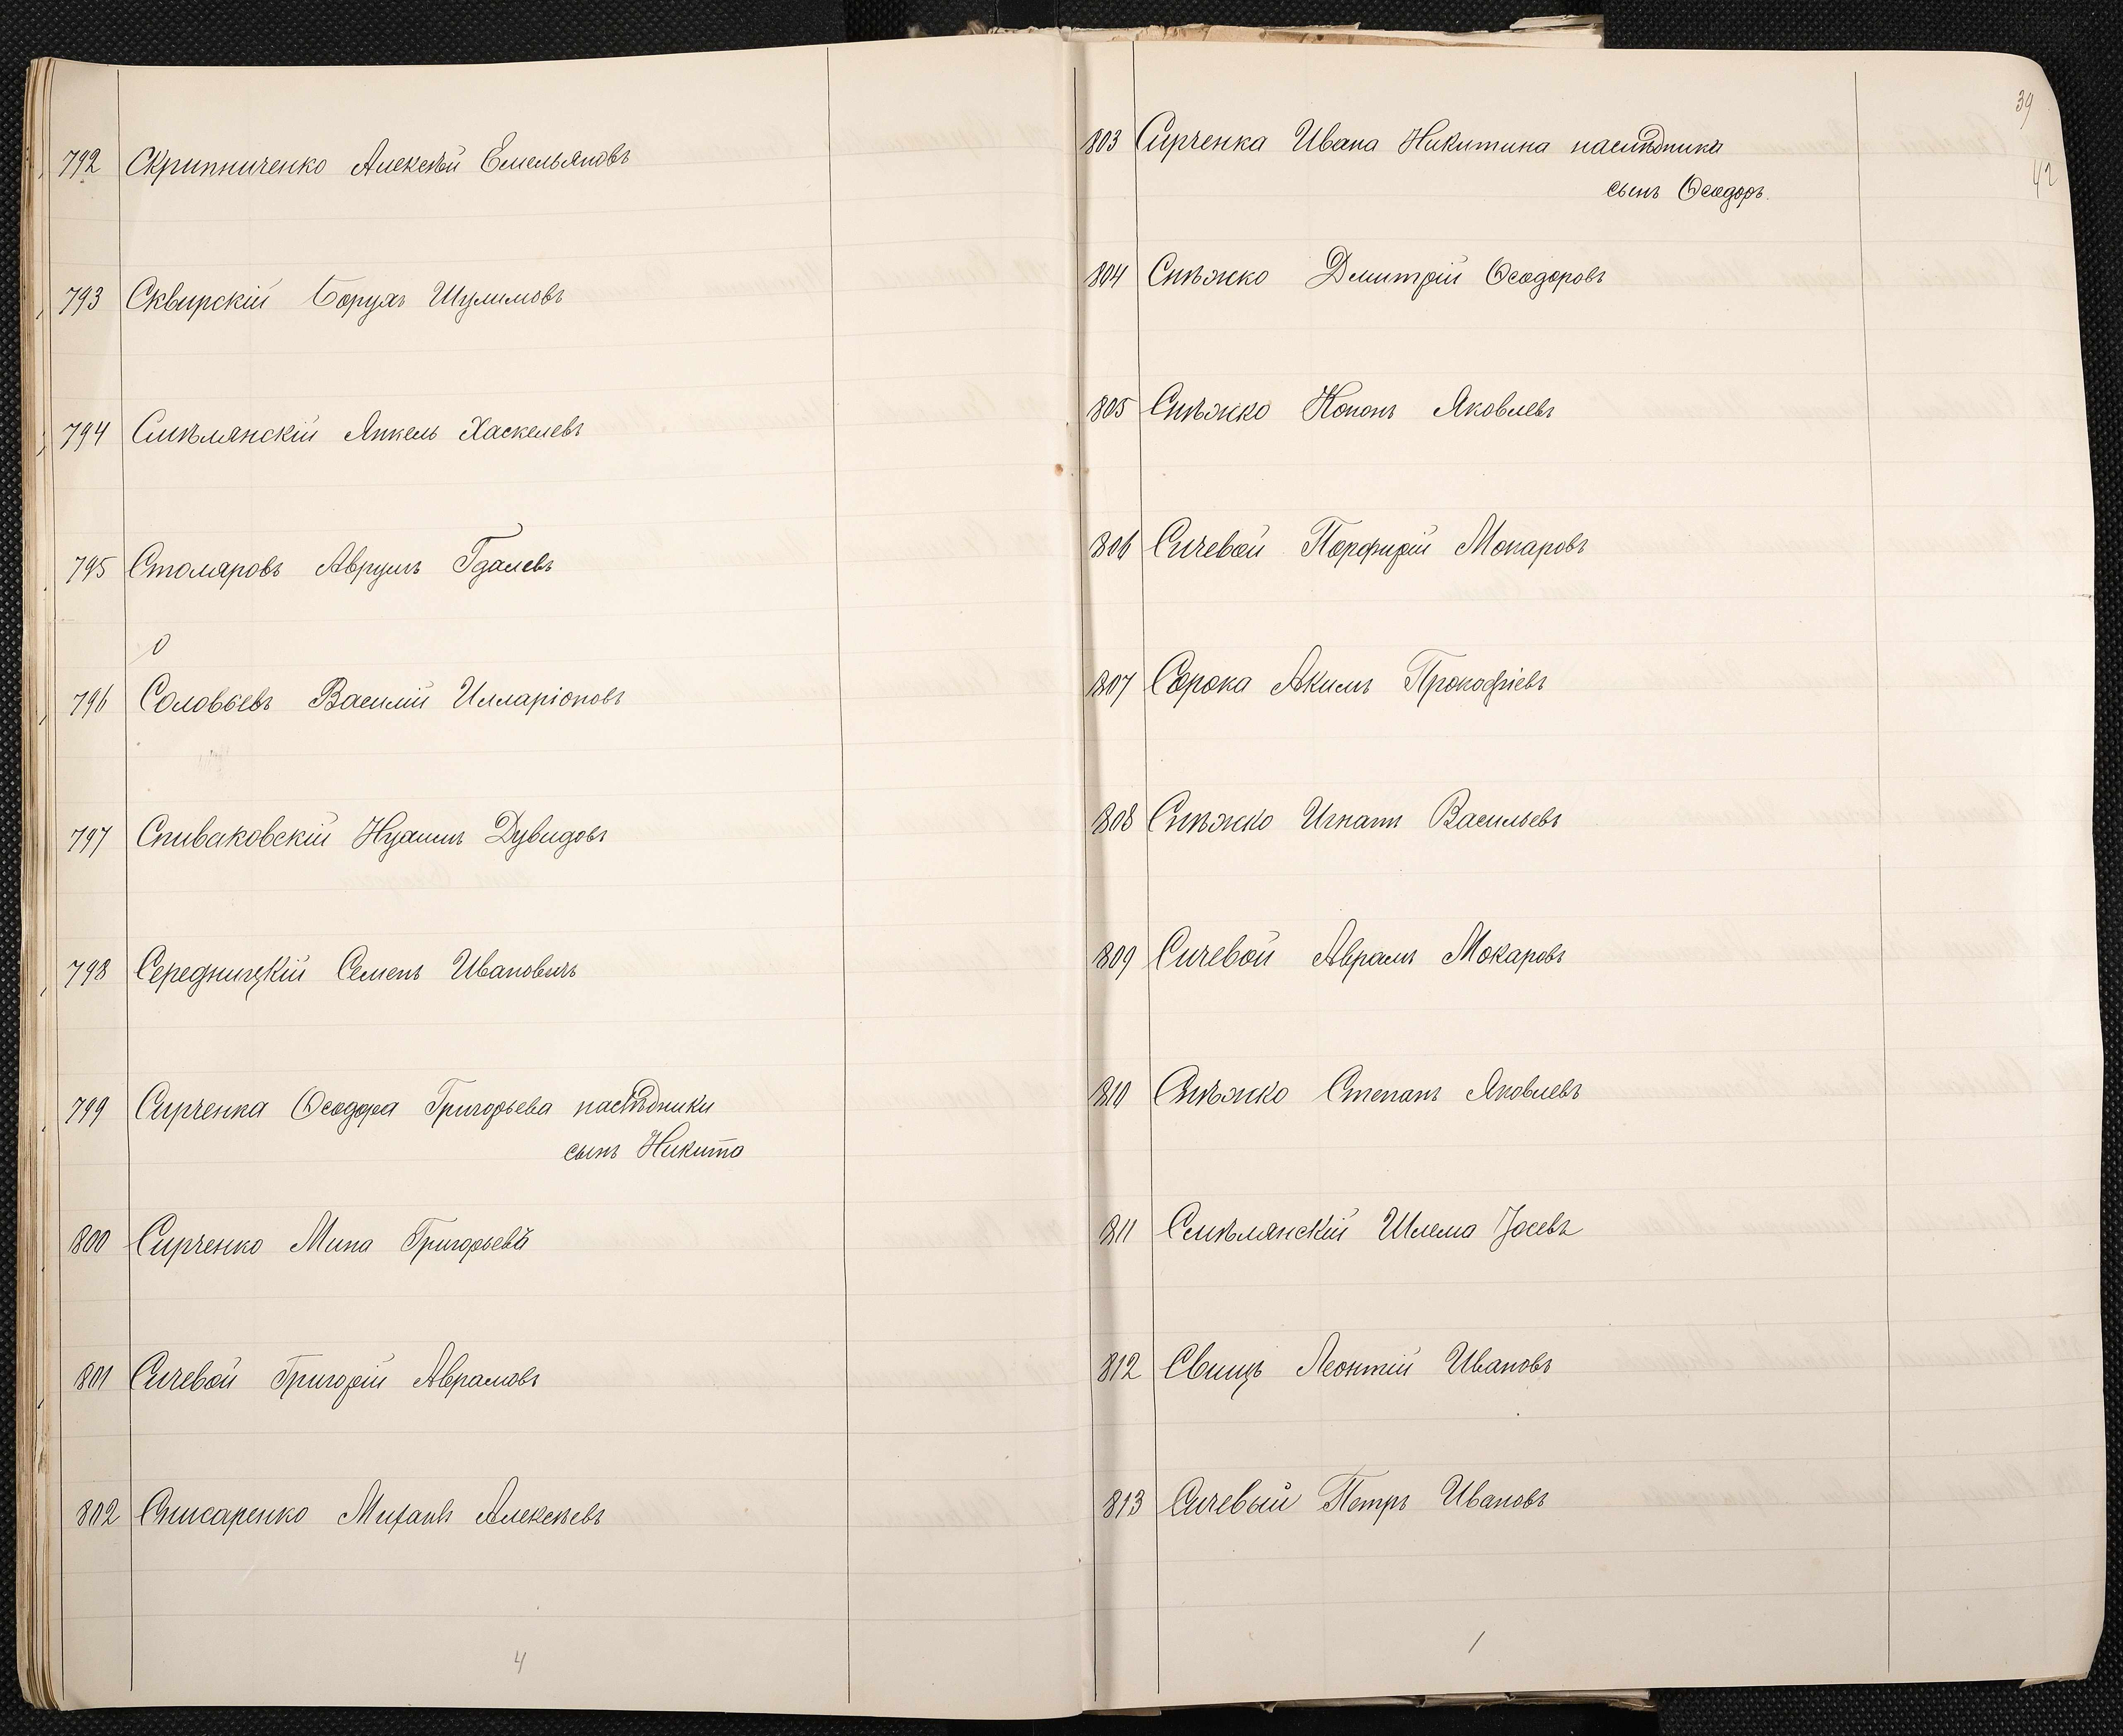 792 Скрипниченко Алексѣй Емельяновъ
793 Сквирскій Борухъ Шулимовъ
794 Смѣлянскій Янкель Хаскелевъ
795 Столяровъ Аврумъ Гдалевъ
0
796 Соловьевъ Василій Илларіоновъ
797 Спиваковскій Нухимъ Дувидовъ
798 Середницкій Семенъ Ивановичъ
799 Сирченка Ѳеодора Григорьева наслѣдники
сынъ Никита
800 Сирченко Мина Григорьевъ
801 Сичевой Григорій Аврамовъ
802 Снисаренко Михаилъ Алексѣевъ
39
42
803 Сирченка Ивана Никитина наслѣдника
сынъ Ѳеодоръ.
804 Снѣжко Дмитрій Ѳеодоровъ
805 Снѣжко Кононъ Яковлевъ
806 Сичевой Порфирій Мокаровъ
807 Сорока Акимъ Прокофіевъ
808 Снѣжко Игнатъ Васильевъ
809 Сичевой Аврамъ Мокаровъ
810 Снѣжко Степанъ Яковлевъ
811 Смѣлянскій Шлема Іосевъ
812 Свищъ Леонтій Ивановъ
813 Сичевый Петръ Ивановъ
4
/